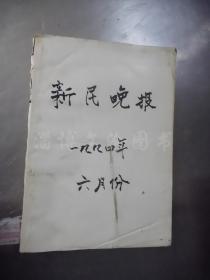 新民晚报
一九九四年
六月份